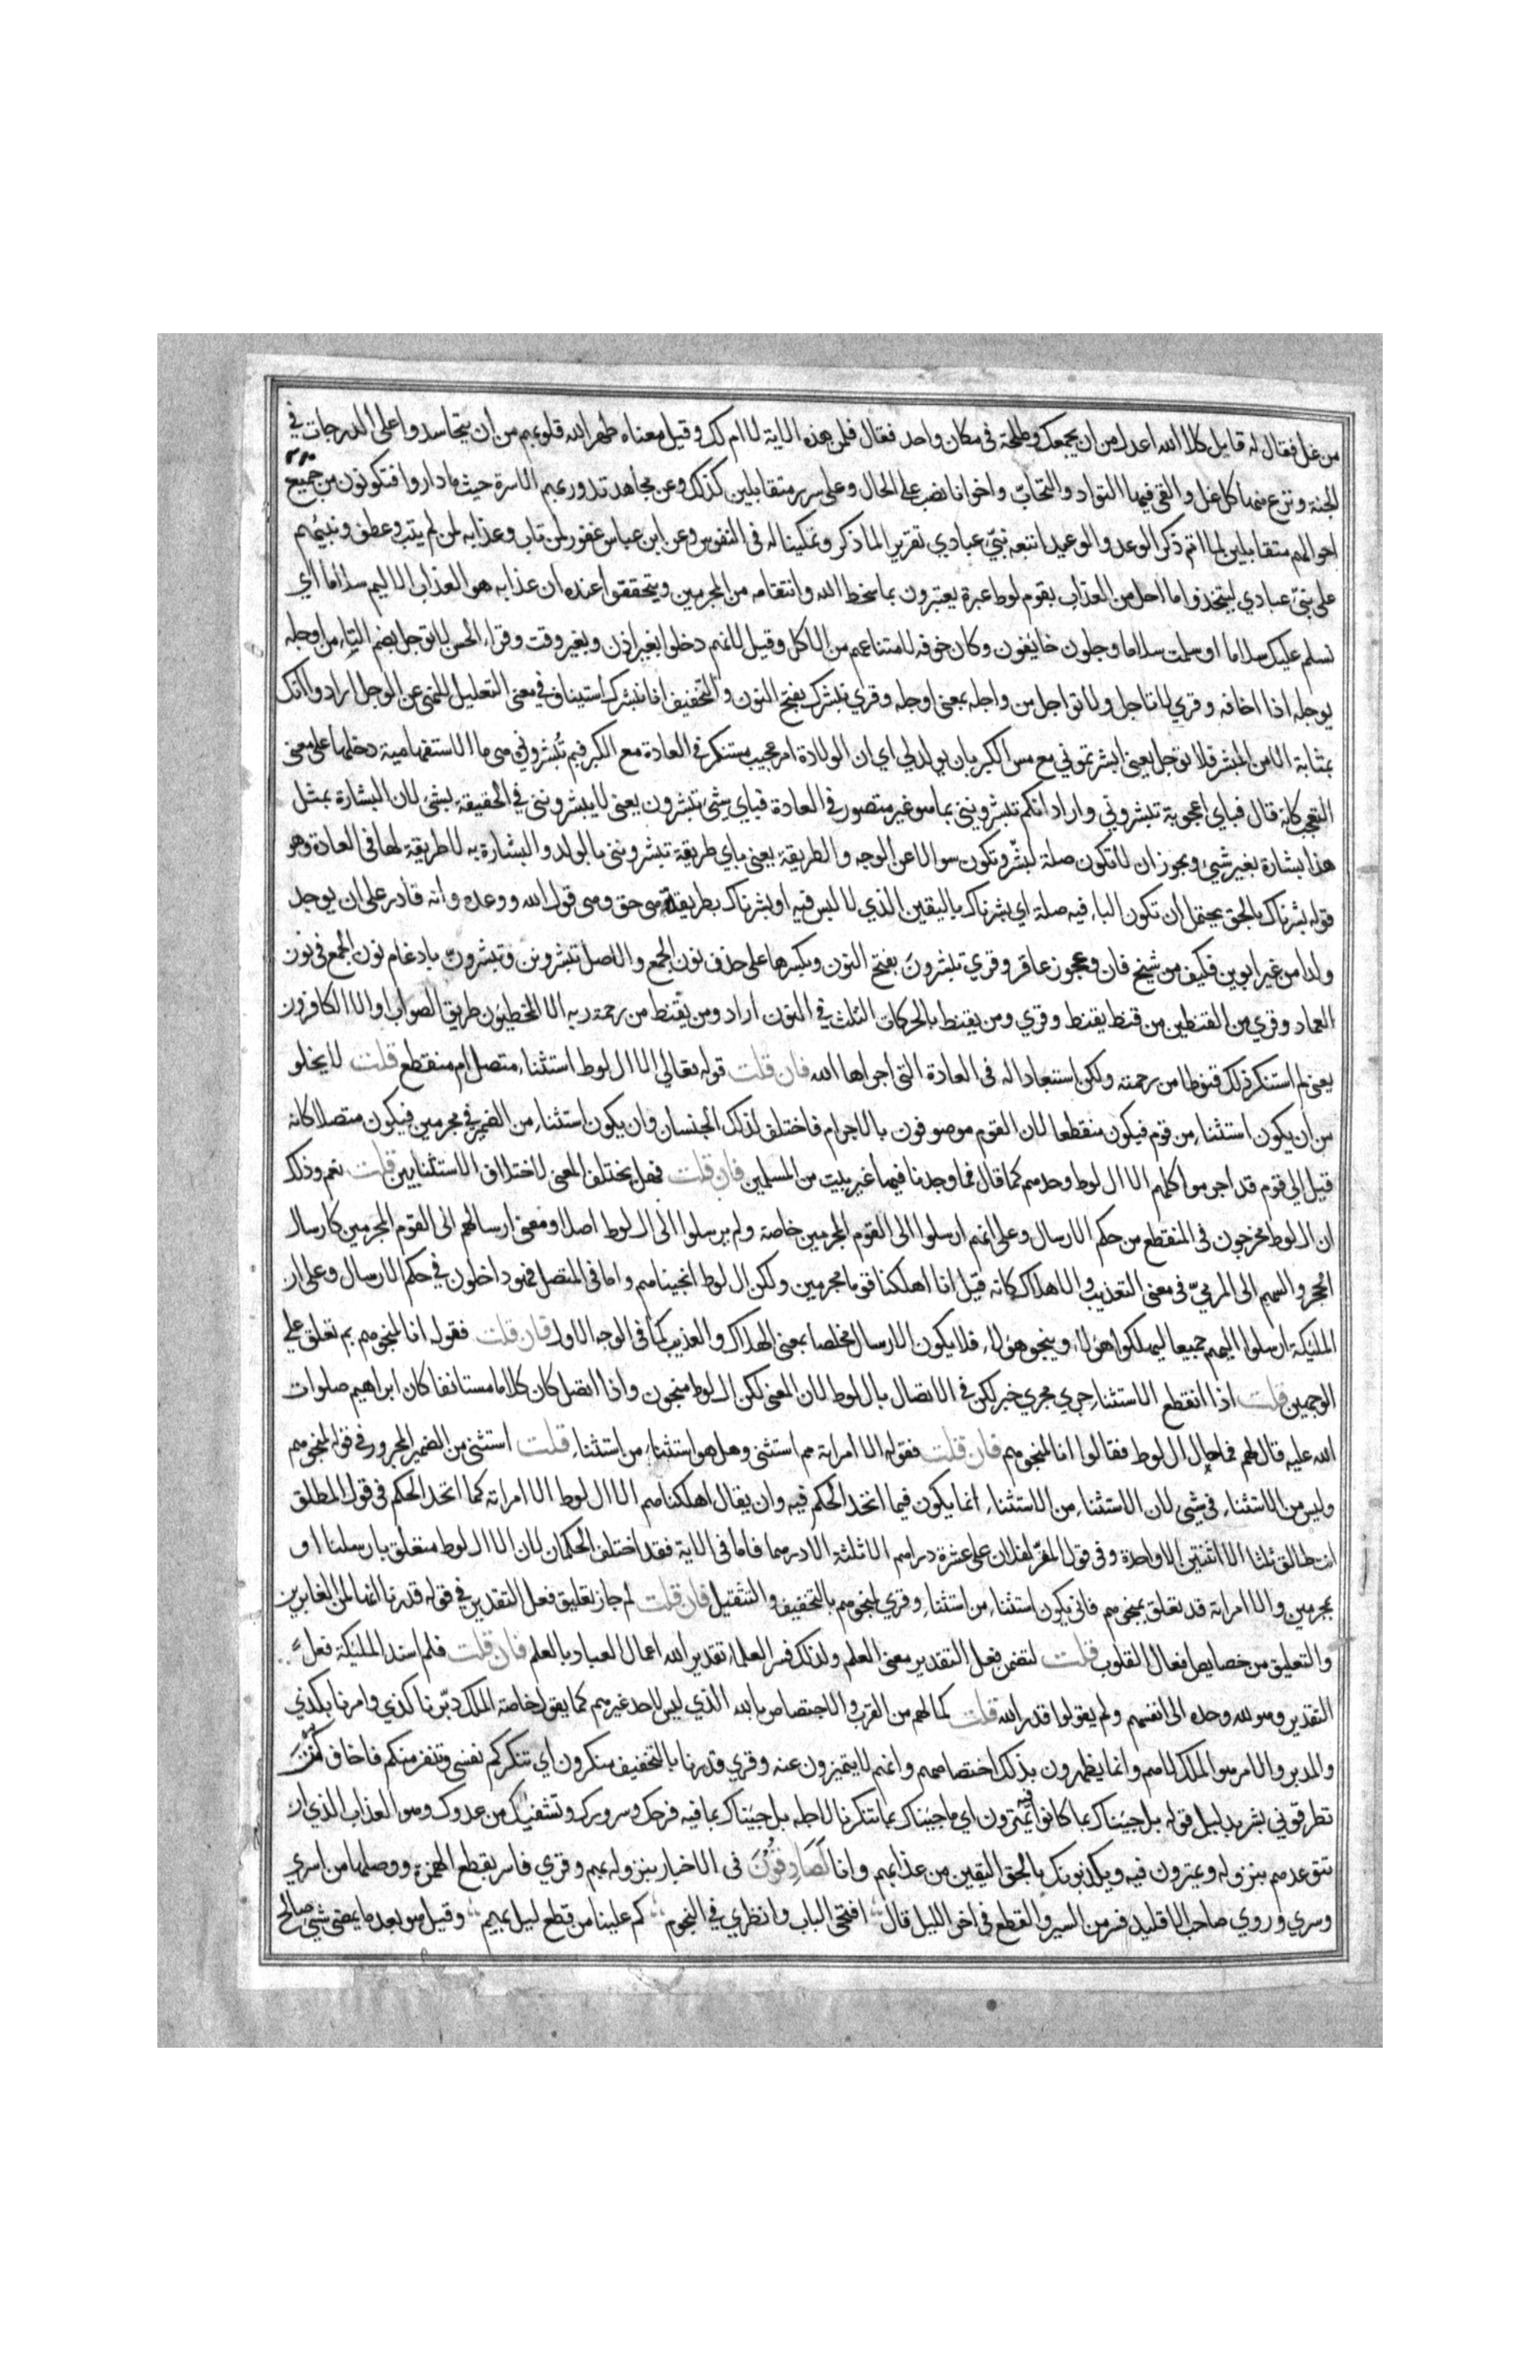 من غل فقال له قايل كلا الله اعدل من ان يجمعك وطلحة في مكان واحد فقال فلمن هذه الاية لا ام لك وقيل معناه طهر الله قلوبهم من ان يتحاسدوا على الدرجات في
الجنة ونزع منها كل غل والقى فيها التواد والتحاب واخوانا نصب على الحال وعلى سرر متقابلين كذلك وعن مجاهد تدور بهم الاسرة حيث ما داروا فتكونون من جميع
احوالهم متقابلين لما اتم ذكر الوعد والوعيد اتبعه نبئ عبادي تقرير الما ذكر وتمكينا له في النفوس وعن ابن عباس غفور لمن تاب وعذابه لمن لم يتب وعطف ونبئهم
على نبئ عبادي ليتخذوا ما احل من العذاب بقوم لوط عبرة يعتبرون بما سخط الله وانتقامه من المجرمين ويتحققوا عنده ان عذابه هو العذاب الاليم سلاما اي
نسلم عليك سلاما او سلمت سلاما وجلون خايفون وكان خوفه لامتناعهم من الاكل وقيل لانهم دخلوا بغير اذن وبغير وقت وقراء الحسن لا توجل بضم التاء من اوجله
يوجله اذا اخافه وقري لا تاجل ولا تواجل من واجله بمعنى اوجله وقري نبشرك بفتح النون والتخفيف انا نبشرك استيناف في معنى التعليل للنهي عن الوجل ارادوا انك
بمثابة الامن المبشر فلا توجل يعني ابشرتموني مع مس الكبر بان يولد لي اي ان الولادة امر عجيب مستنكر في العادة مع الكبر فبم تبشروني هي ما الاستفهامية دخلها على معنى
التعجب كانه قال فباي اعجوبة تبشروني واراد انكم تبشرونني بما هو غير متصور في العادة فباي شئ تبشرون يعني لا يبشرونني في الحقيقة بشئ لان البشارة بمثل
هذا بشارة بغير شيء ويجوز ان لا تكون صلة لبشر وتكون سوالا عن الوجه والطريقة يعني باي طريقة تبشرونني بالولد والبشارة به لا طريقة لها في العادة وهو
قوله بشرناك بالحق يحتمل ان تكون الباء فيه صلة اي بشرناك باليقين الذي لا لبس فيه او بشرناك بطريقة هي حق وهي قول الله ووعده وانه قادر على ان يوجد
ولدا من غير ابوين فكيف من شيخ فان وعجوز عاقر وقري تبشرون بفتح النون وبكسرها على حذف نون الجمع والاصل تبشرونن وتبشرون بادغام نون الجمع في نون
العماد وقري من القنطين من قنط يقنط وقري ومن يقنط بالحركات الثلث في النون اراد ومن يقنط من رحمة ربه الا المخطيون طريق الصواب او الا الكافرون
يعني لم استنكر ذلك قنوطا من رحمته ولكن استبعادا له في العادة التي اجراها الله فان قلت قوله تعالي الا ال لوط استثناء متصل ام منقطع قلت لا يخلو
من ان يكون استثناء من قوم فيكون منقطعا لان القوم موصوفون بالاجرام فاختلف لذلك الجنسان وان يكون استثناء من الضمير في مجرمين فيكون متصلا كانه
قيل الي قوم قد اجرموا كلهم الا ال لوط وحدهم كما قال فما وجدنا فيها غير بيت من المسلمين فان قلت فهل يختلف المعنى لاختلاف الاستثنايين قلت نعم وذلك
ان ال لوط مخرجون في المنقطع من حكم الارسال وعلى انهم ارسلوا الى القوم المجرمين خاصة ولم يرسلوا الى ال لوط اصلا ومعنى ارسالهم الى القوم المجرمين كارسال
الحجر والسهم الى المرمي في معنى التعذيب والاهلاك كانه قيل انا اهلكنا قوما مجرمين ولكن ال لوط انجيناهم واما في المتصل فهو داخلون في حكم الارسال وعلى ان
المليكة ارسلوا اليهم جميعا ليهلكوا هولاء وينجو هولاء فلا يكون الارسال مخلصا بمعنى الهلاك والعذيب كما في الوجه الاول فان قلت فقوله انا لمنجوهم بم تعلق على
الوجهين قلت اذا انقطع الاستثناء جري مجري خبر لكن في الاتصال بال لوط لان المعنى لكن ال لوط منجون واذا اتصل كان كلاما مستانفا كان ابراهيم صلوات
الله عليه قال لهم فما حال ال لوط فقالوا انا لمنجوهم فان قلت فقوله الا امراته مم استثنى وهل هو استثناء من استثناء قلت استثنى من الضمير المجرور في قوله لمنجوهم
وليس من الاستثناء في شي لان الاستثناء من الاستثناء انما يكون فيما اتحد الحكم فيه وان يقال اهلكناهم الا ال لوط الا امراته كما اتحد الحكم في قول المطلق
انت طالق ثلثا الا اثنتين الا واحدة وفي قول المقر لفلان على عشرة دراهم الا ثلثة الا درهما فاما في الاية فقد اختلف الحكمان لان الا ال لوط متعلق بارسلنا او
بمجرمين والا امراته قد تعلق بمنجوهم فانى يكون استثناء من استثناء وقري لمنجوهم بالتخفيف والتثقيل فان قلت لم جاز تعليق فعل التقدير في قوله قدرنا انها لمن الغابرين
والتعليق من خصايص افعال القلوب قلت لتضمن فعل التقدير معنى العلم ولذلك فسر العلماء تقدير الله اعمال العباد بالعلم فان قلت فلم اسند المليكة فعل
التقدير وهو لله وحده الى انفسهم ولم يقولوا قدر الله قلت لما لهم من القرب والاختصاص بالله الذي ليس لاحد غيرهم كما يقول خاصة الملك دبرنا كذي وامرنا بكذي
والمدبر والامر هو الملك لاهم وانما يظهرون بذلك اختصاصهم وانهم لا يتميزون عنه وقري قدرنا بالتخفيف منكرون اي تنكركم نفسي وتنفر منكم فاخاف ان
تطرقوني بشر بدليل قوله بل جئناك بما كانوا فيه يمترون اي ما جئناك بما تنكرنا لاجله بل جئناك بما فيه فرحك وسرورك وتشفيك من عدوك وهو العذاب الذي ان
تتوعدهم بنزوله ويمترون فيه ويكذبونك بالحق اليقين من عذابهم وانا لصادقون في الاخبار بنزوله بهم وقري فاسر بقطع الهمزة ووصلها من اسري
وسري وروي صاحب الاقليد فسر من السير والقطع في اخر الليل قال افتحي الباب وانظري في النجوم كم علينا من قطع ليل بهيم وقيل هو بعد ما يمضي شي صالح